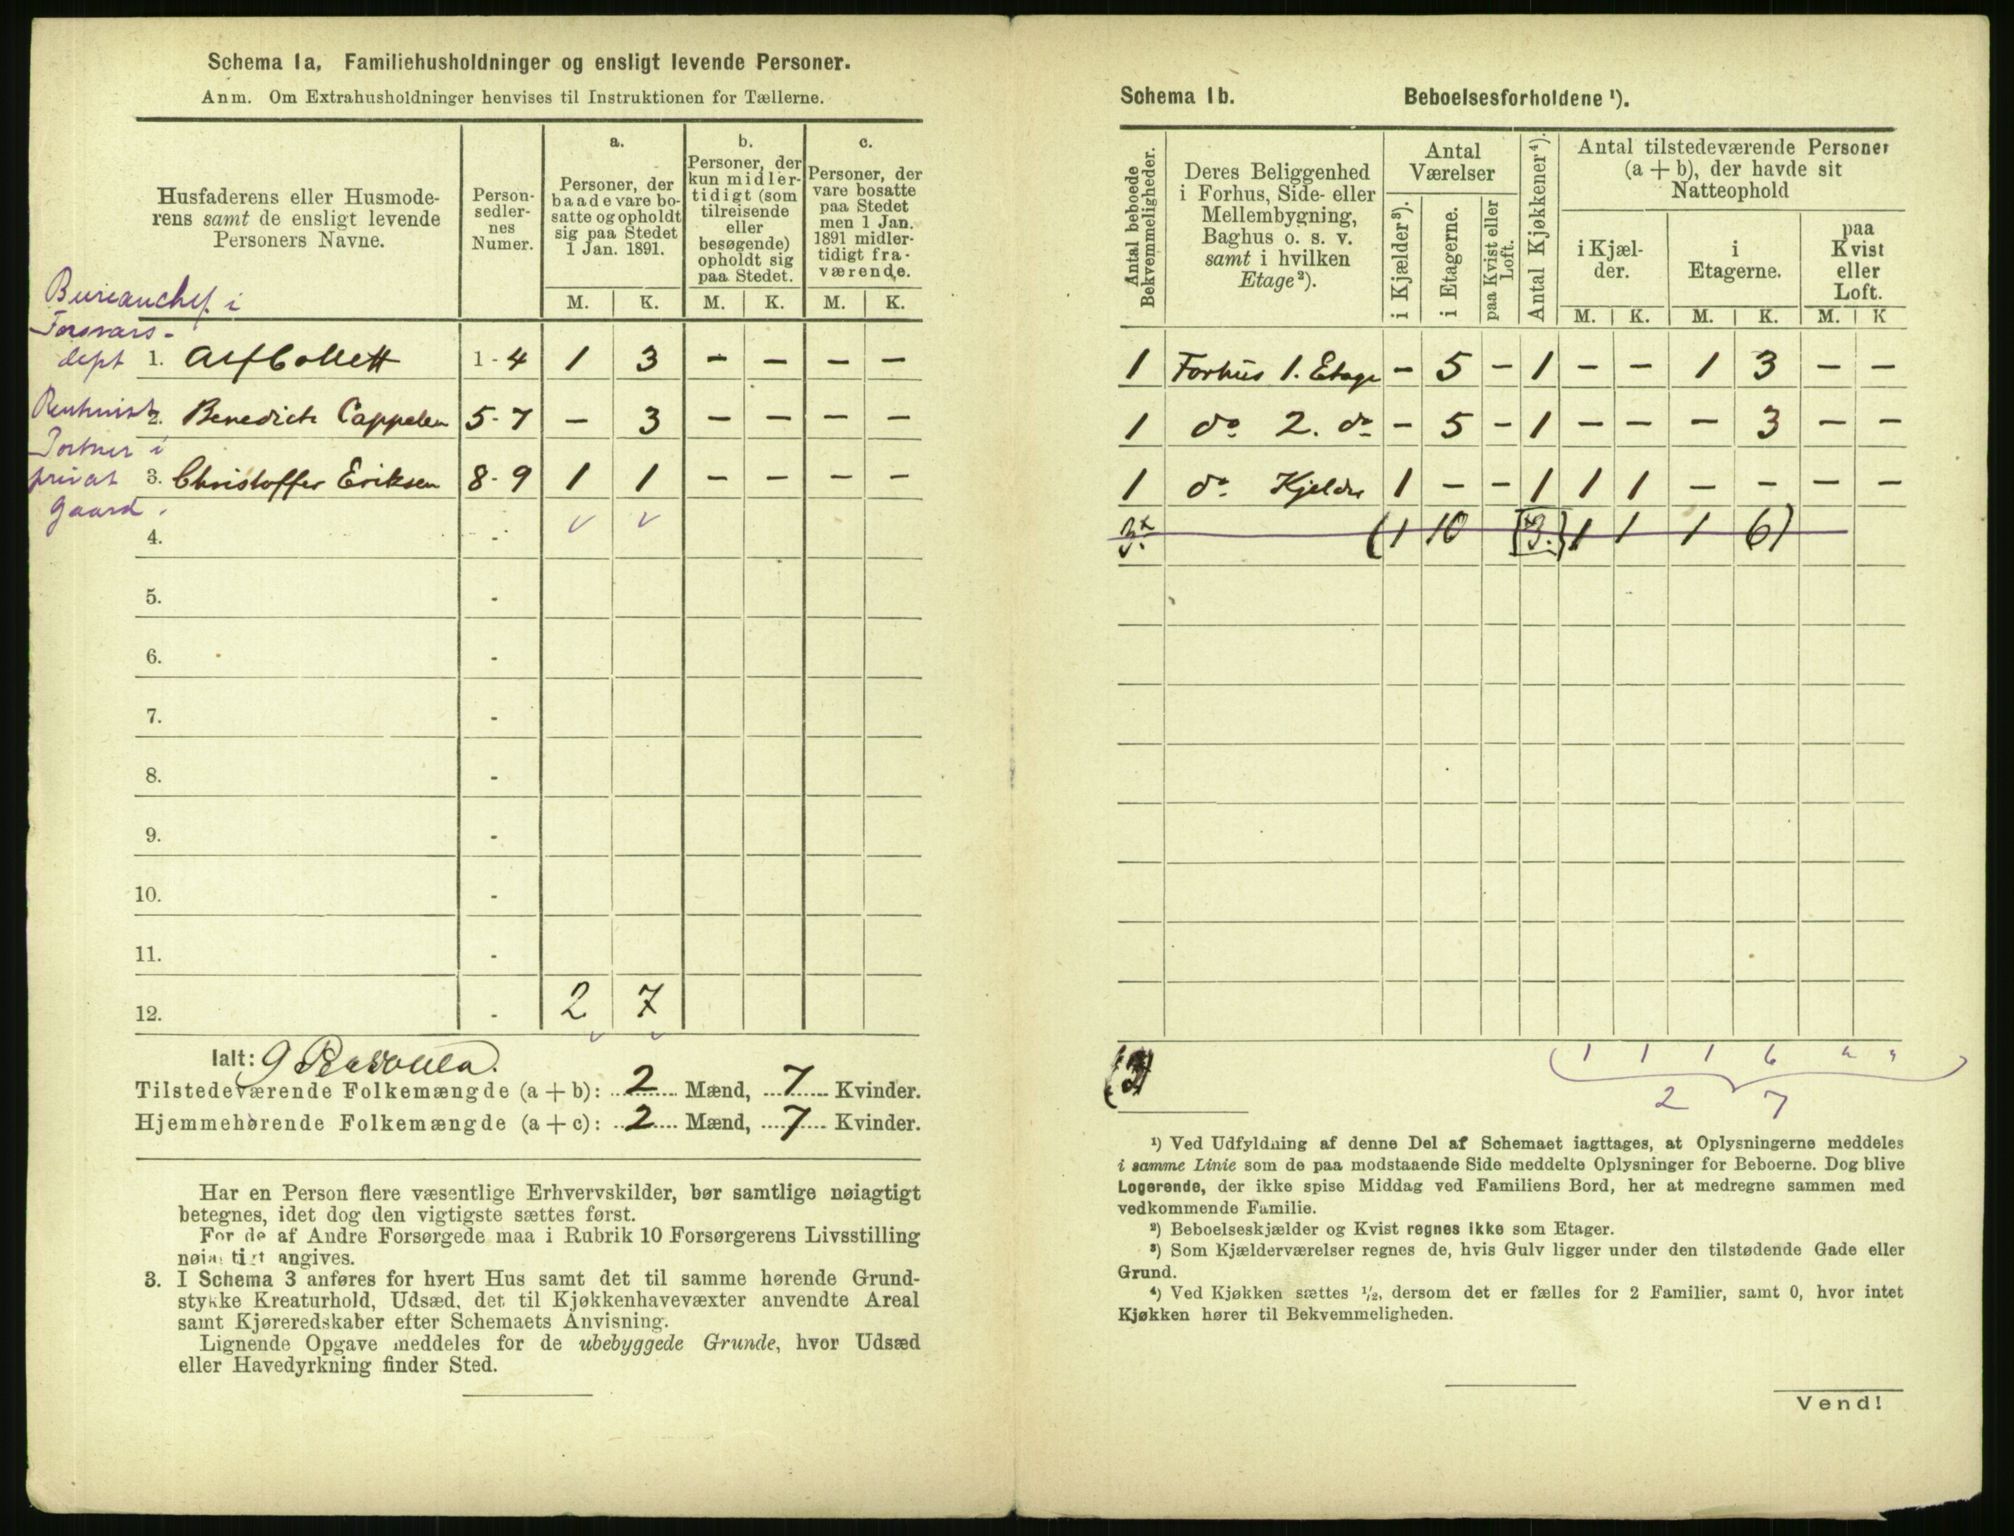 Schema 1a. Familiehusholdninger og ensligt levende Personer.
Anm. Om Extrahusholdninger henvises til Instruktionen for Tællerne.
Husfaderens eller Husmode-
rens samt de ensligt levende
Personers Navne.
Person-
sedler-
nes
Numer.
a.
Personer, der
baade vare bo-
satte og opholdt
sig paa Stedet
1 Jan. 1891.
b.
Personer, der
kun midler-
tidigt (som
tilreisende
eller
besøgende)
opholdt sig
paa Stedet.
c.
Personer, der
vare bosatte
paa Stedet
men 1 Jan.
1891 midler-
tidigt fra-
værende.
M. K. M. K. M. K.
Bureauchef i
Forsvars-
dept 1. Alf Collett 1-4 1 3 - - - -
2. Benedicte Cappelen 5-7 - 3 - - - -
Portner i
privat 3. Christoffer Eriksen 8-9 1 1 - - - -
Gaard.
4. -
5. -
6. -
7. -
8. -
9. -
10. -
11. -
12. - 2 7
Ialt: 9
Tilstedeværende Folkemængde (a + b): 2 Mænd, 7 Kvinder.
Hjemmehørende Folkemængde (a + c): 2 Mænd, 7 Kvinder.
Har en Person flere væsentlige Erhvervskilder, bør samtlige nøiagtigt
betegnes, idet dog den vigtigste sættes først.
For de af Andre Forsørgede maa i Rubrik 10 Forsørgerens Livsstilling
nøiagtigt angives.
3. I Schema 3 anføres for hvert Hus samt det til samme hørende Grund-
stykke Kreaturhold, Udsæd, det til Kjøkkenhavevæxter anvendte Areal
samt Kjøreredskaber efter Schemaets Anvisning.
Lignende Opgave meddeles for de ubebyggede Grunde, hvor Udsæd
eller Havedyrkning finder Sted.
Schema 1b. Beboelsesforholdene ¹).
Antal beboede
Bekvemmeligheder.
Deres Beliggenhed
i Forhus, Side- eller
Mellembygning,
Baghus o. s. v.
samt i hvilken
Etage²).
Antal
Værelser
i Kjælder³).
i Etagerne.
paa Kvist eller
Loft.
Antal Kjøkkener⁴).
Antal tilstedeværende Personer
(a + b), der havde sit
Natteophold
i Kjæl-
der.
i
Etagerne.
paa
Kvist
eller
Loft.
M. K. M. K. M. K
1 Forhus 1. Etage - 5 - 1 - - 1 3 - -
1 do 2. do - 5 - 1 - - - 3 - -
1 do Kjelder 1 - - 1 1 1 - - - -
3. (1 10 3. 1 1 1 6)
(3)
(1 1 1 6 " ")
2 7
¹) Ved Udfyldning af denne Del af Schemaet iagttages, at Oplysningerne meddeles
i samme Linie som de paa modstaaende Side meddelte Oplysninger for Beboerne. Dog blive
Logerende, der ikke spise Middag ved Familiens Bord, her at medregne sammen med
vedkommende Familie.
²) Beboelseskjælder og Kvist regnes ikke som Etager.
³) Som Kjælderværelser regnes de, hvis Gulv ligger under den tilstødende Gade eller
Grund.
⁴) Ved Kjøkken sættes ½, dersom det er fælles for 2 Familier, samt 0, hvor intet
Kjøkken hører til Bekvemmeligheden.
Vend!